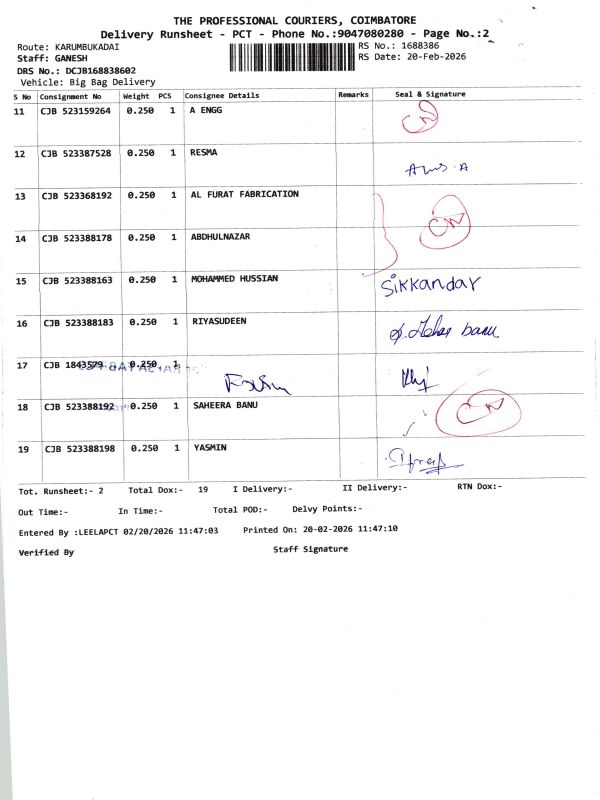 THE PROFESSIONAL COURIERS, COIMBATORE
Delivery Runsheet - PCT - Phone No.:9047080280 - Page No.:2
Route: KARUMBUKADAI RS No.: 1688386
Staff: GANESH RS Date: 20-Feb-2026
DRS No.: DCJB168838602
Vehicle: Big Bag Delivery
S No Consignment No Weight PCS Consignee Details Remarks Seal & Signature
11 CJB 523159264 0.250 1 A ENGG CN
12 CJB 523387528 0.250 1 RESMA
13 CJB 523368192 0.250 1 AL FURAT FABRICATION
14 CJB 523388178 0.250 1 ABDHULNAZAR CN
15 CJB 523388163 0.250 1 MOHAMMED HUSSIAN Sikkandar
16 CJB 523388183 0.250 1 RIYASUDEEN banu
17 CJB 1843579 0.250 1
18 CJB 523388192 0.250 1 SAHEERA BANU CN
19 CJB 523388198 0.250 1 YASMIN
Tot. Runsheet:- 2 Total Dox:- 19 I Delivery:- II Delivery:- RTN Dox:-
Out Time:- In Time:- Total POD:- Delvy Points:-
Entered By :LEELAPCT 02/20/2026 11:47:03 Printed On: 20-02-2026 11:47:10
Verified By Staff Signature